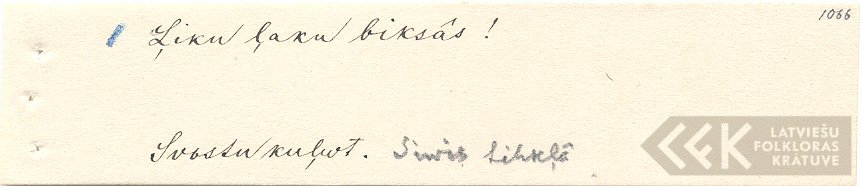 1066
Ļiku ļaku biksâs !
Svostu kuļvot. Siwis tihkļā
LATVIEŠU
FOLKLORAS
KRĀTUVE